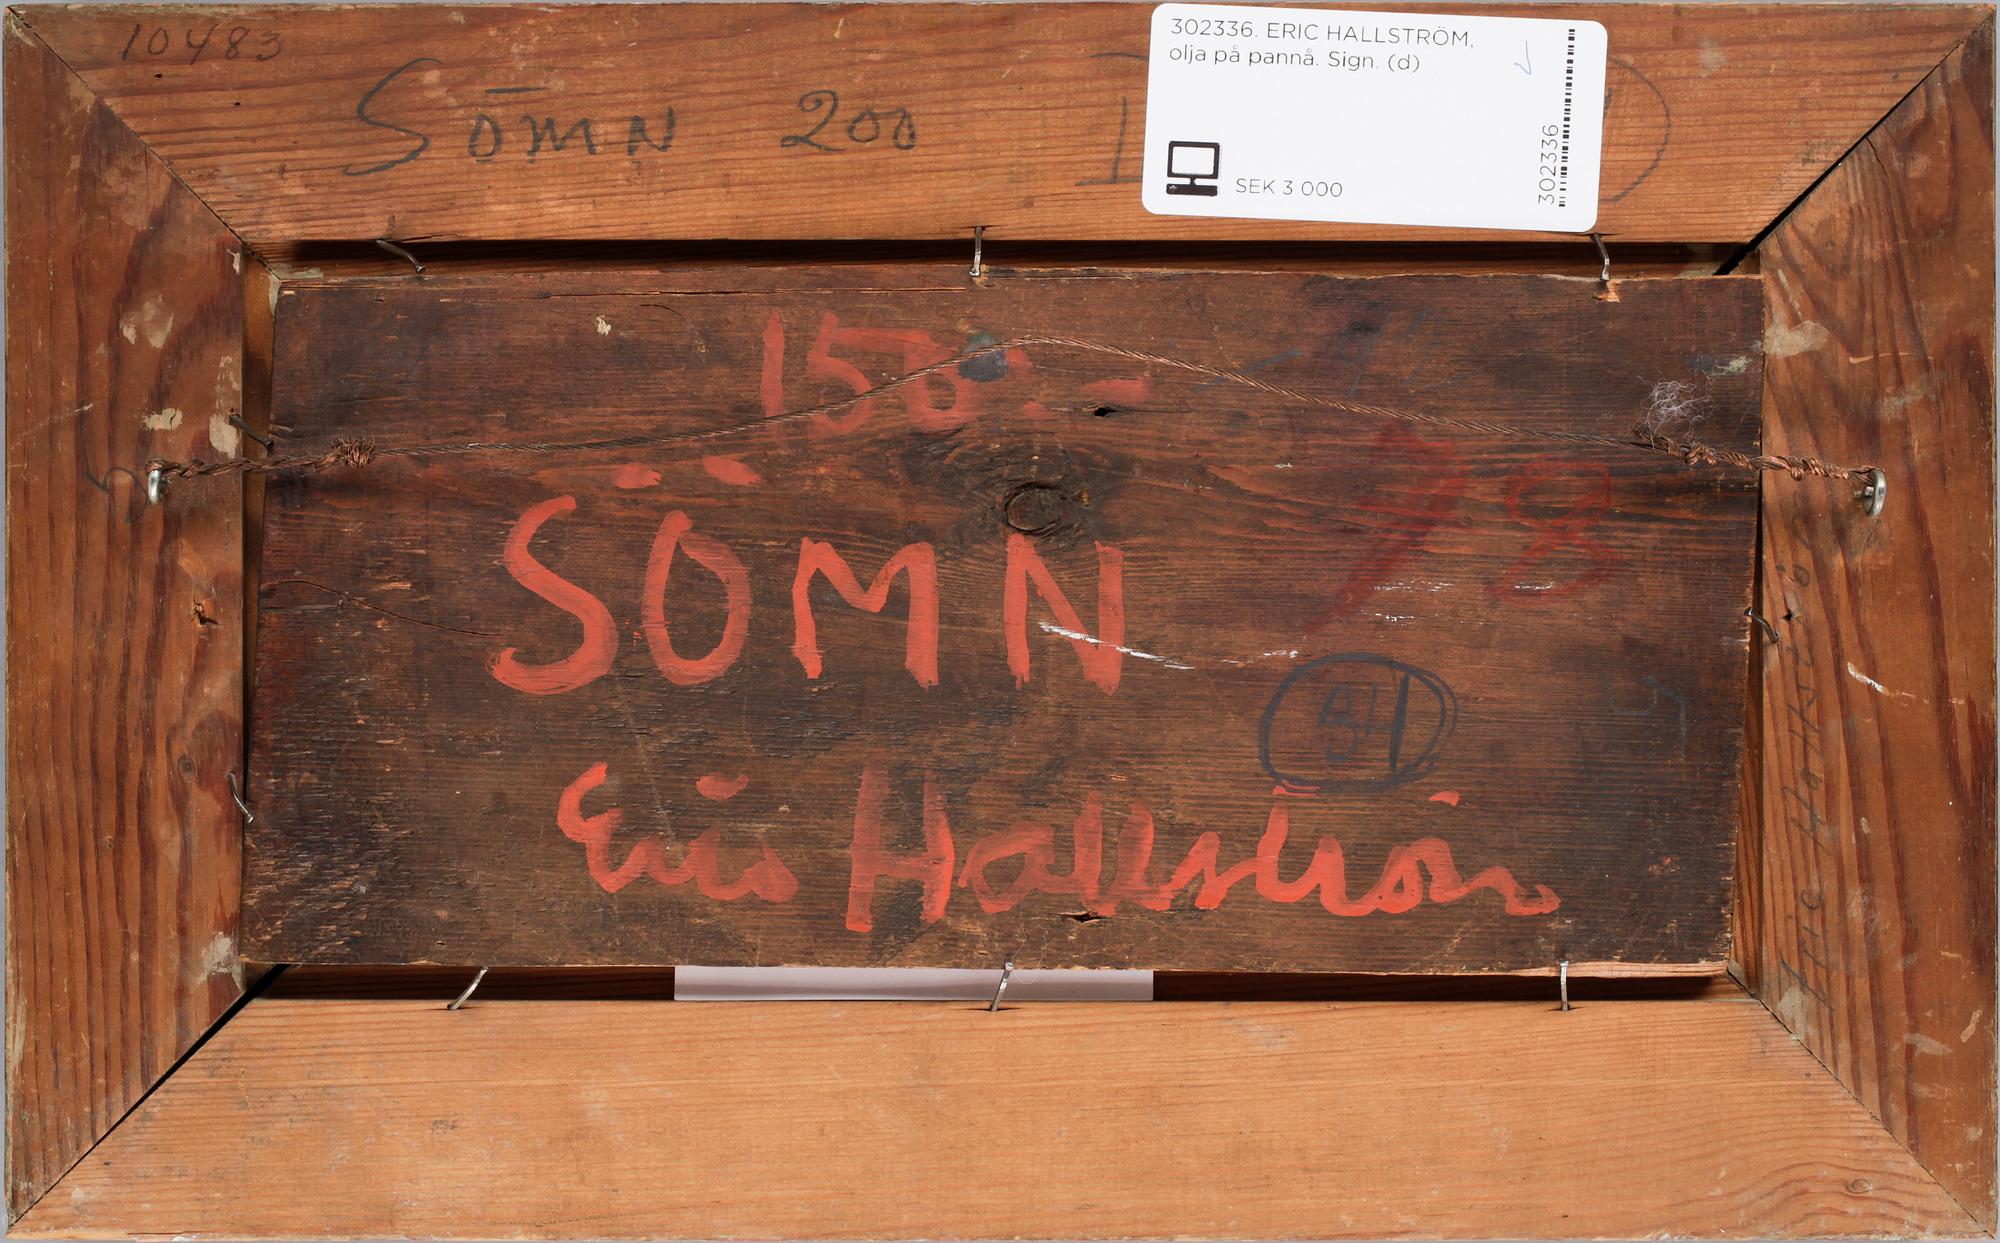 10483
SÖMN 200
302336. ERIC HALLSTRÖM,
olja på pannå. Sign. (d)
SEK 3 000
302336
150:-
SÖMN
78
34
Eric Hallström